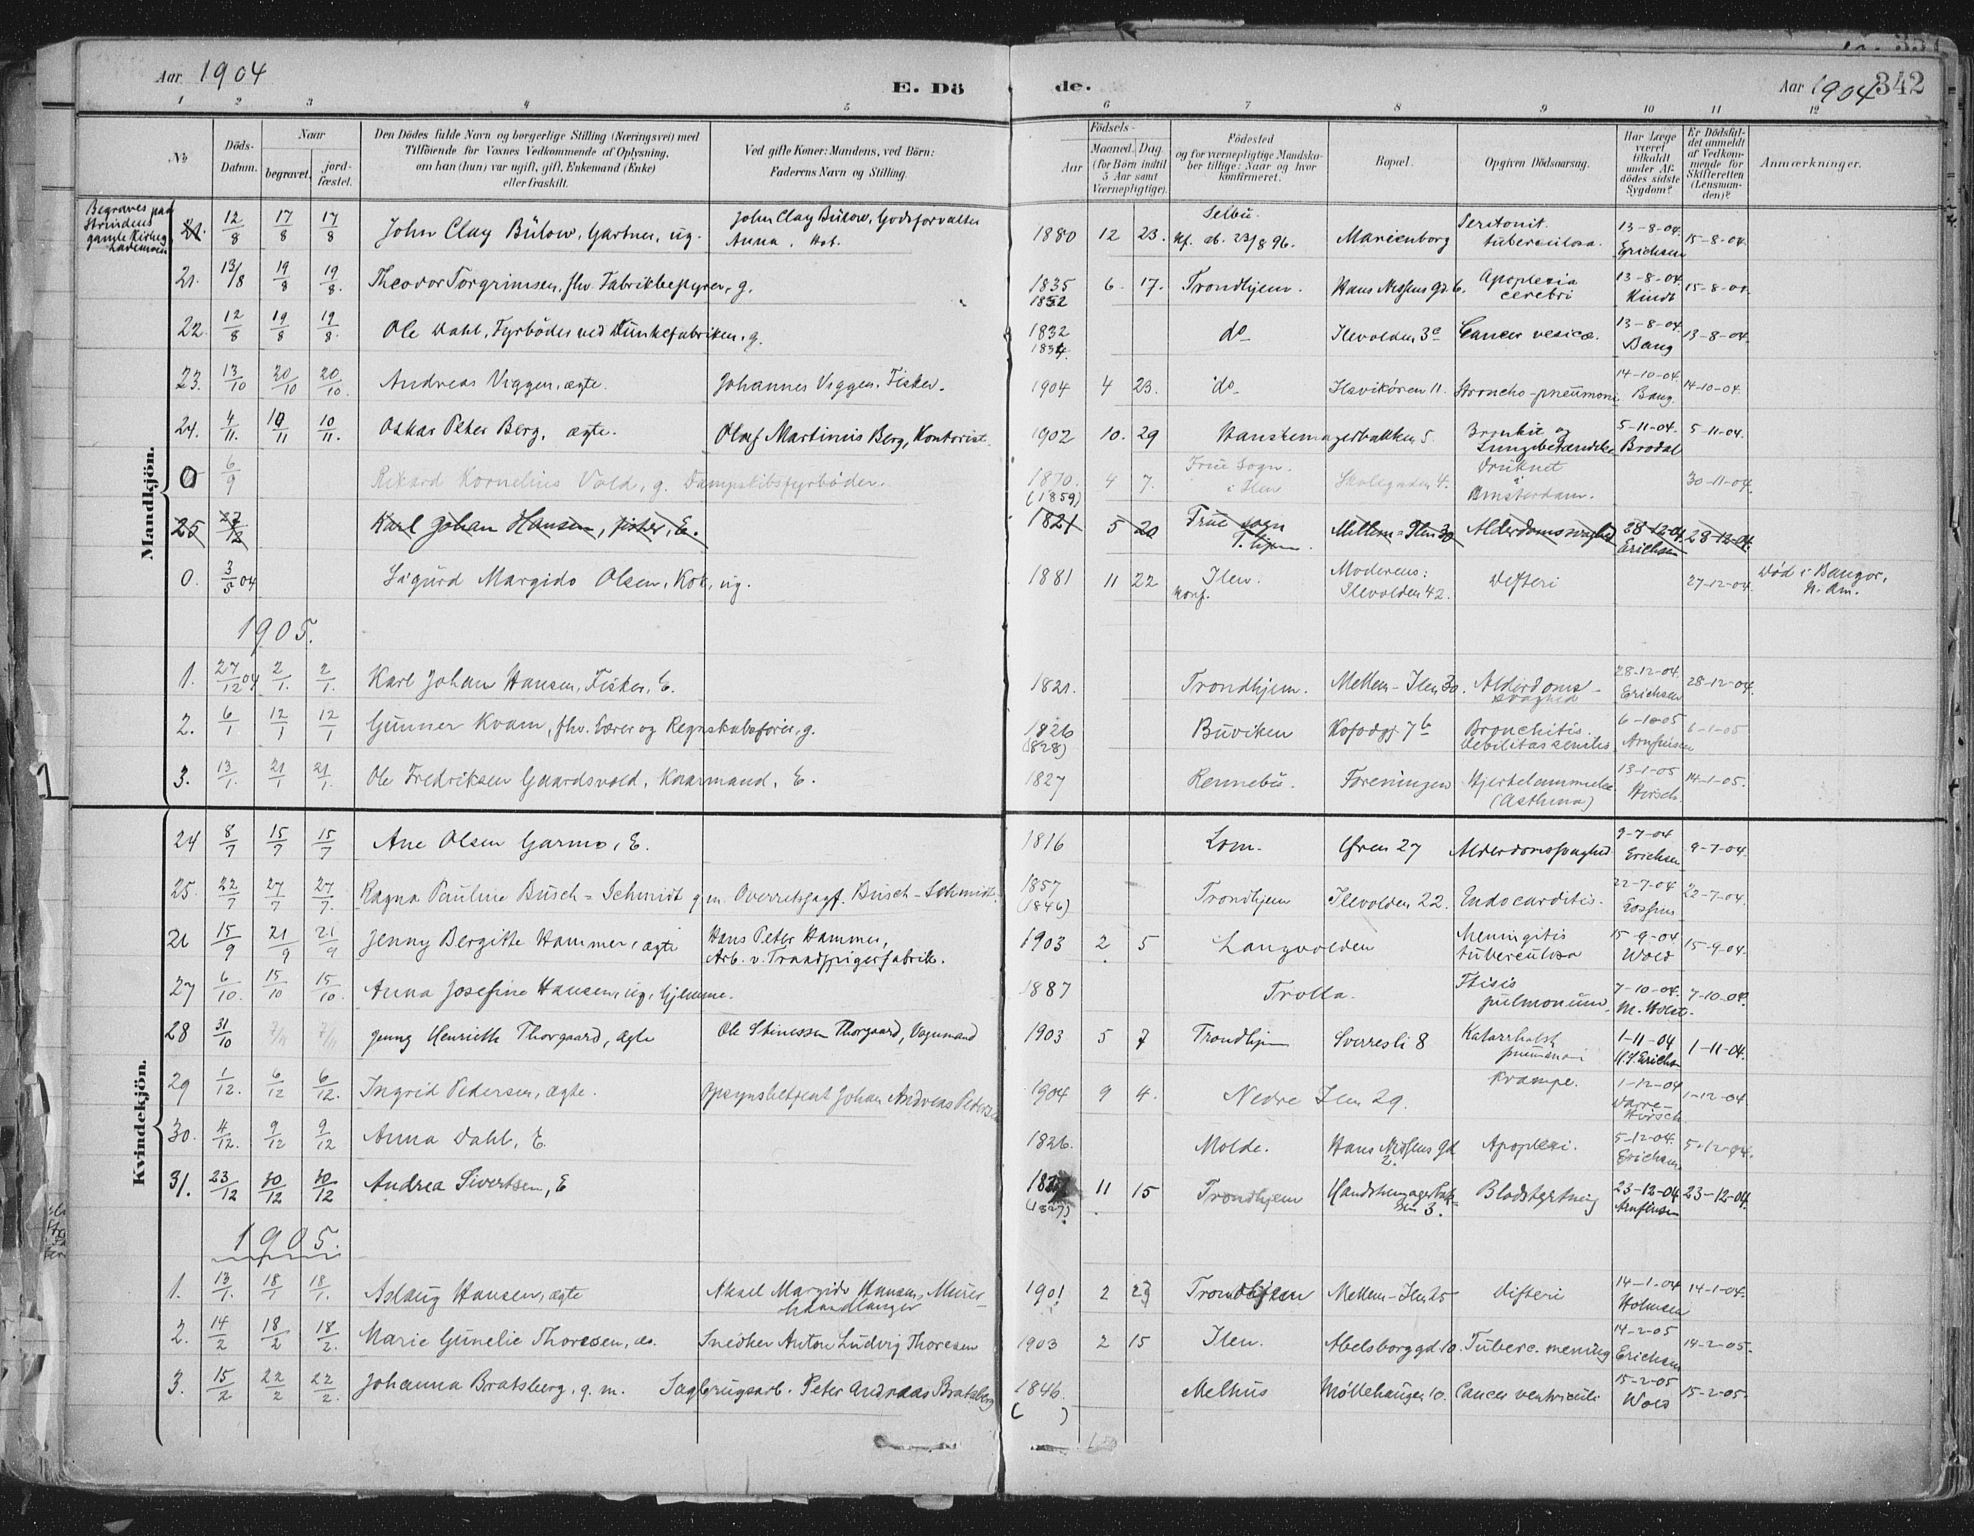 Aar 1904 E. Dö de. Aar 1904 342
1 2 3 4 5 6 7 8 9 10 11 12
No Döds-Datum. Naar begravet. jord-fæstet. Den Dödes fulde Navn og borgerlige Stilling (Næringsvei) med Tilföiende for Voxnes Vedkommende af Oplysning, om han (hun) var ugift, gift, Enkemand (Enke) eller fraskilt. Ved gifte Koner: Mandens, ved Börn: Faderens Navn og Stilling. Födsels- Aar Maaned. Dag (for Börn indtil 5 Aar samt Værnepligtige). Födested og for værnepligtige Mandskaber tillige: Naar og hvor konfirmeret. Bopæl. Opgiven Dödsaarsag. Har Læge været tilkaldt under Afdödes sidste Sygdom? Er Dödsfaldet anmeldt af Vedkommende for Skifteretten (Lensmanden)? Anmærkninger.
Mandkjön.
Begraves paa Strindens gamle Kirkeg.
12/8 17/8 17/8 John Clay Bülow, Gartner, ug. John Clay Bülow, Godsforvalter Anna, Hob. 1880 12 23. Selbu. 23/8 96. Marienborg Peritonit. tuberculosa. 13-8-04. Erichsen 15-8-04.
21. 13/8 19/8 19/8. Theodor Torgrimsen, fhv. Fabrikbestyrer, g. 1835 1832 6. 17. Trondhjem. Hans Nissens gd. 6. Apoplexia cerebri 13-8-04. Kindt 15-8-04
22. 12/8 19/8 19/8. Ole Dahl, Fyrböder ved Tünkefabriken, g. 1832 1834. do Ilevolden 3c Cancer vesicæ. 13-8-04. Bang 13-8-04.
23. 13/10 20/10 20/10. Andreas Viggen, ægte. Johannes Viggen, Fisker. 1904 4 23. do Ilsvikören 11. Broncho-pneumoni 14-10-04. Bang. 14-10-04.
24. 4/11. 10/11 10/11. Oskar Peter Berg, ægte. Oluf Martinius Berg, Kontorist. 1902 10. 29 Hanskemagerbakken 5. Bronkit og Lungebetændelse 5-11-04. Brodal 5-11-04.
0 6/9 Rikard Kornelius Vold, g. Dampskibsfyrböder. 1870. (1859) 4 7. Frue Sogn. i Ilen Skolegaden 4. Druknet i Amsterdam. 30-11-04.
25 27/12 Karl Johan Hansen, fisker, E. 1821 5 20 Frue sogn T.hjem. Mellem-Ilen 30 Alderdomssvaghed 28-12-04. Erichsen 28-12-04.
0. 3/5 04 Sigurd Margido Olsen, Kok, ug. 1881 11 22 Ilen. Konf. Moderens: Ilevolden 42. Difteri 27-12-04. Död i Bangor, N. Am.
1905.
1. 27/12 04 2/1. 2/1. Karl Johan Hansen, Fisker, E. 1821. Trondhjem. Mellem-Ilen 30. Alderdoms-svaghed 28-12-04. Erichsen 28-12-04.
2. 6/1 12/1 12/1 Gunner Kvam, fhv. Lærer og Regnskabsförer, g. 1826 (1828) Buviken Kofodgj. 7b Bronchitis. Debilitas senilis 6-1-05 Arnfinsen 6-1-05
3. 13/1. 21/1 21/1. Ole Fredriksen Gaardsvold, Kaarmand, E. 1827 Rennebu. Foreningen Hjertelammelse (Asthma) 13-1-05 Hirsch. 14-1-05.
Kvindekjön.
24 8/7 15/7 15/7 Ane Olsen Garmo, E. 1816 Lom. Ören 27 Alderdomssvaghed 9-7-04 Erichsen 9-7-04.
25. 22/7 27/7 27/7. Ragna Pauline Busch-Schmidt g. m. Overretssagf. Busch-Schmidt. 1857 (1846) Trondhjem Ilevolden 22. Endocarditis. 22-7-04 22-7-04.
26 15/9 21/9 21/9 Jenny Bergitte Hammer, ægte Hans Peter Hammer, Arb. v. Traadspigerfabrik. 1903 2 5 Langvolden Meningitis tuberculosa 15-9-04. Wold 15-9-04.
27 6/10. 15/10 15/10. Anna Josefine Hansen, ug. hjemme. 1887 Trolla. Ftisis pulmonum 7-10-04. M. Holst 7-10-04.
28 31/10 7/11 7/11 Jenny Henriette Thorgaard, ægte Ole Stinessen Thorgaard, Vognmand 1903 5 7 Trondhjem Sverresli 8 Katarrhalsk pneumoni 1-11-04 Erichsen 1-11-04.
29 1/12. 6/12 6/12. Ingrid Pedersen, ægte. Opsynsbetjent Johan Andreas Pedersen 1904 9 4. Nedre Ilen 29. Krampe. 1-12-04 Darre-Hirsch 1-12-04.
30. 4/12. 9/12 9/12 Anna Dahl, E. 1826. Molde. Hans Nissens gd 2. Apoplexi. 5-12-04. Erichsen 5-12-04.
31. 23/12 30/12 30/12 Andrea Sivertsen, E (1827) 11 15 Trondhjem Handskemagerbakken 3. Blodstyrtning 23-12-04 Arnfinsen 23-12-04.
1905.
1. 13/1. 18/1 18/1. Aslaug Hansen, ægte Aksel Margido Hansen, Murerhaandlanger 1901 2 23 Trondhjem Mellem-Ilen 25 Difteri 14-1-04 Holmsen 14-1-04.
2. 14/2 18/2 18/2. Marie Gunelie Thoresen, do. Snedker Anton Ludvig Thoresen 1903 2 15 Ilen. Abelsborg gd 10. Tuberc. mening 14-2-05 Erichsen 14-2-05.
3. 15/2 22/2 22/2. Johanna Bratsberg, g. m. Sagbrugsarb. Peter Andreas Bratsberg 1846. ( ) Melhus Möllehaugen 10. Cancer ventriculi 15-2-05 Wold 15-2-05.